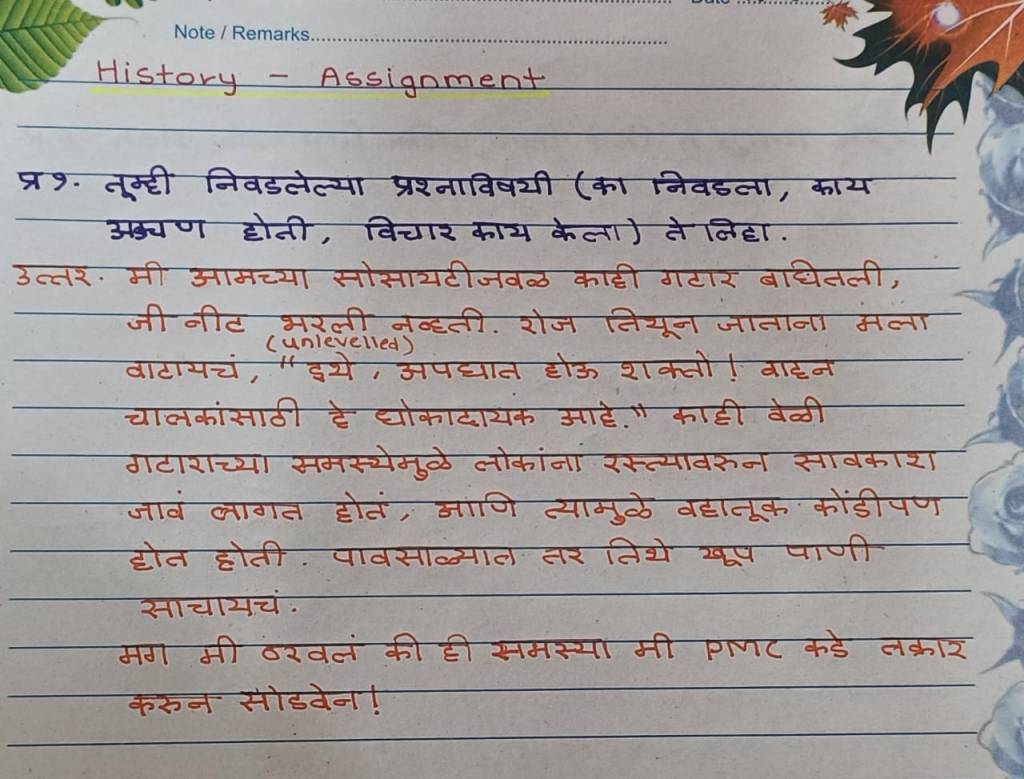 Date ..................
Note / Remarks..................................................................
History - Assignment
प्र १. तूम्ही निवडलेल्या प्रश्नाविषयी (का निवडला, काय
होती, विचार काय केला) ते लिहा.
उत्तर. मी आमच्या सोसायटीजवळ काही गटार बघितली,
जी नीट भरली नव्हती. रोज तिथून जाताना मला
(unlevelled)
वाटायचं, "इथे, अपघात होऊ शकतो! वाहन
चालकांसाठी हे धोकादायक आहे." काही वेळी
गटाराच्या समस्येमुळे लोकांना रस्त्यावरुन सावकाश
जावं लागत होतं, आणि त्यामुळे वहातूक कोंडीपण
होत होती. पावसाळ्यात तर तिथे खूप पाणी
साचायचं.
मग मी ठरवलं की ही समस्या मी PMC कडे तक्रार
करुन सोडवेन!